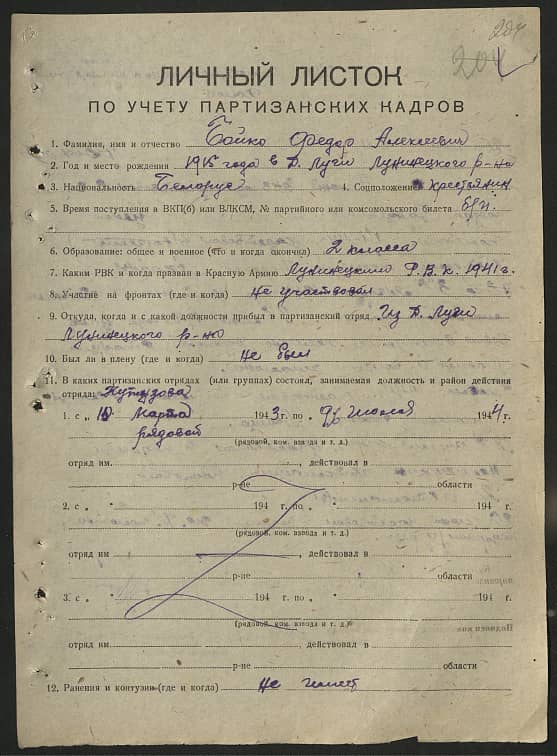 204
204
ЛИЧНЫЙ ЛИСТОК
ПО УЧЕТУ ПАРТИЗАНСКИХ КАДРОВ
1. Фамилия, имя и отчество Бойко Федор Алексеевич
2. Год и место рождения 1915 года в д. Луги Лунинецкого р-на
3. Национальность Белорус 4. Соцположение крестьянин
5. Время поступления в ВКП(б) или ВЛКСМ, № партийного или комсомольского билета б/п.
6. Образование: общее и военное (что и когда окончил) 2 класса
7. Каким РВК и когда призван в Красную Армию Лунинецким Р.В.К. 1941 г.
8. Участие на фронтах (где и когда) не участвовал
9. Откуда, когда и с какой должности прибыл в партизанский отряд Из д. Луги
Лунинецкого р-на
10. Был ли в плену (где и когда) не был
11. В каких партизанских отрядах (или группах) состоял, занимаемая должность и район действия
отряда: Кутузова
1. с „ 10 Марта 1943 г. по „ июля 1944 г.
рядовой
(рядовой, ком. взвода и т. д.)
отряд им. действовал в
р-не области
2. с „ 194 г. по „ 194 г.
(рядовой, ком. взвода и т. д.)
отряд им действовал в
р-не области
3. с „ 194 г. по „ 194 г.
(рядовой, ком. взвода и т. д.)
отряд им. действовал в
р-не области
12. Ранения и контузии (где и когда) не имеет